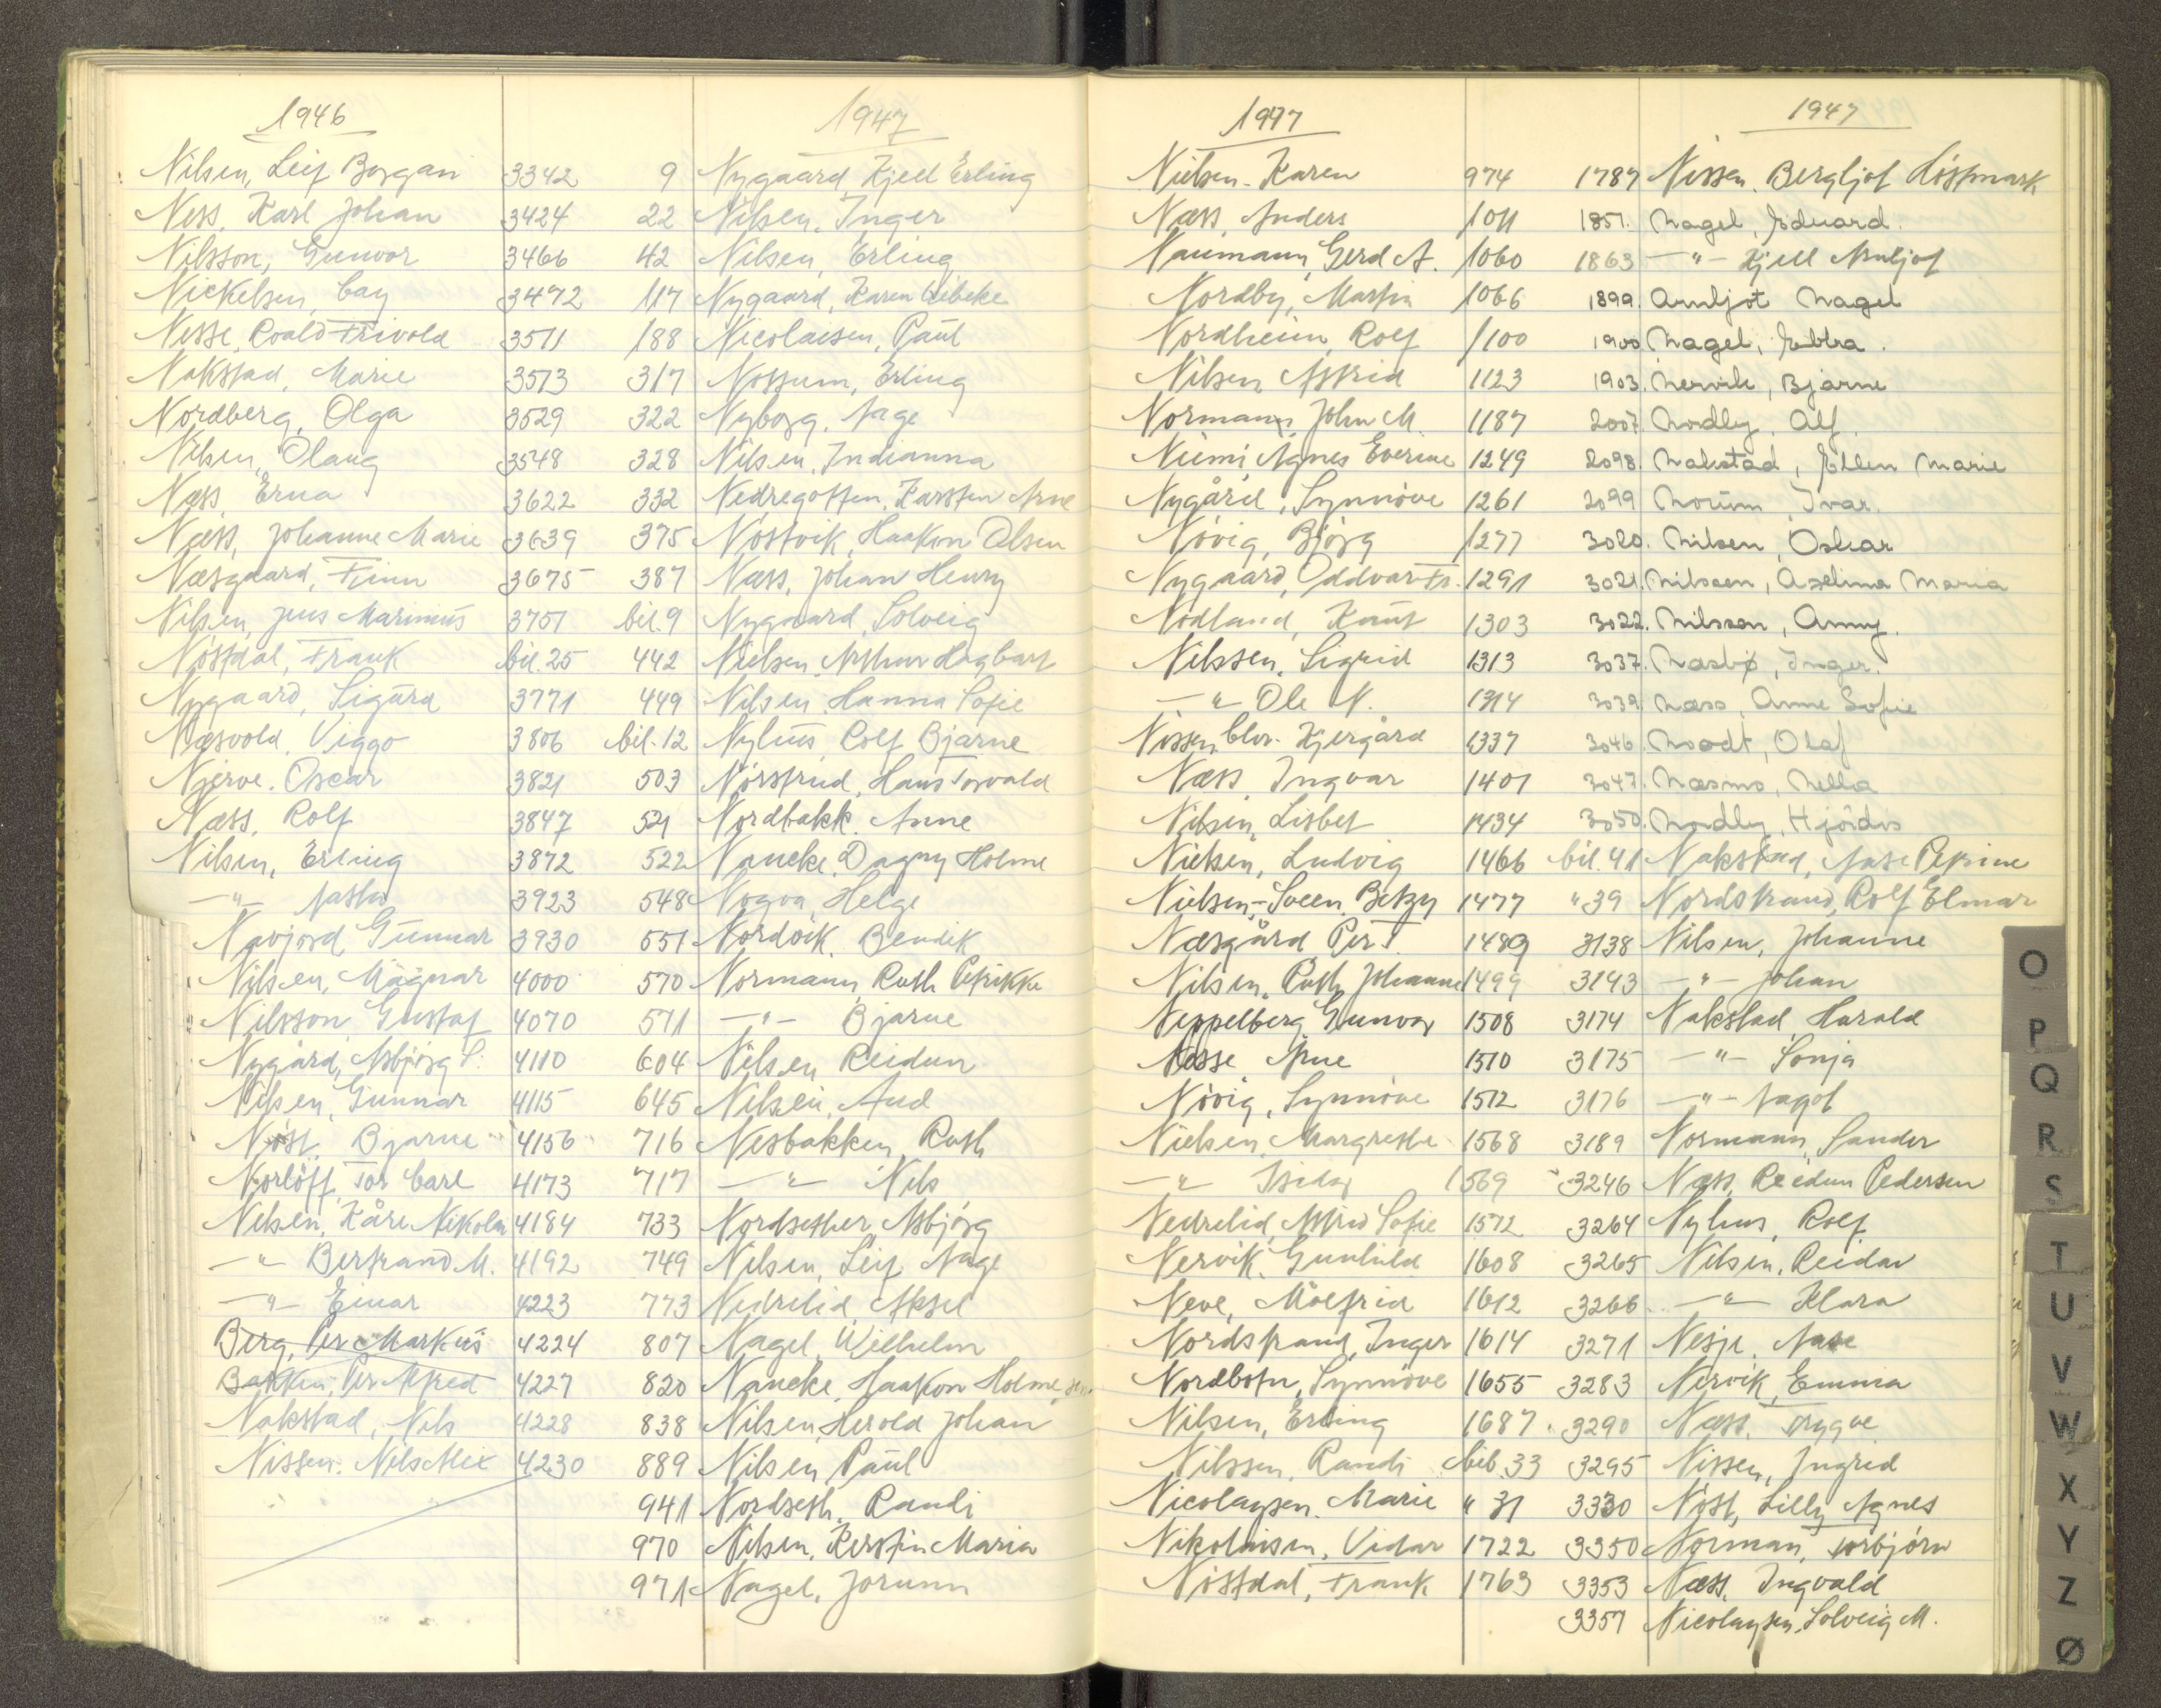 1946
Nilsen, Leif Borgan 3342
Ness, Karl Johan 3424
Nilsson, Gunvor 3466
Nickelsen, Cay 3472
Nesse, Roald Frivold 3511
Nakstad, Marie 3513
Nordberg, Olga 3529
Nilsen, Olaug 3548
Næss, Erna 3622
Næss, Johanne Marie 3639
Næsgaard, Finn 3675
Nilsen, Jens Marinius 3751
Nøstdal, Frank bil. 25
Nygaard, Sigurd 3771
Næsvold, Viggo 3806
Njerve, Oscar 3821
Næss, Rolf 3847
Nilsen, Erling 3872
—"— Aasta 3923
Navjord Gunnar 3930
Nilsen, Magnar 4000
Nilsson Gustaf 4070
Nygård, Asbjørg S. 4110
Nilsen, Gunnar 4115
Nøst, Bjarne 4156
Norløff, Tor Carl 4173
Nilsen, Kåre Nikolai 4184
—"— Bertrand M. 4192
—"— Einar 4223
Berg, Per Markus 4224
Bakken, Per Alfred 4227
Nakstad, Nils 4228
Nissen, Nils Alex 4230
1947
9 Nygaard, Kjell Erling
22 Nilsen, Inger
42 Nilsen, Erling
117 Nygaard, Karen Wibeke
188 Nicolaisen, Paul
317 Nossum, Erling
322 Nyborg, Aage
328 Nilsen, Indianna
332 Nedregotten, Karsten Arne
375 Nøstvik, Haakon Olsen
387 Næss, Johan Henry
bil. 9 Nygaard, Solveig
442 Nielsen, Arthur Hagbart
449 Nilsen, Hanna Sofie
bil. 12 Nylius, Rolf Bjarne
503 Nørstrud, Hans Torvald
521 Nordbakk, Anne
522 Naucke, Dagny Holme
548 Nogva, Helge
551 Nordvik, Bendik
570 Normann, Ruth Petrikke
571 —"— Bjarne
604 Nilsen, Reidun
645 Nilsen, Aud
716 Nesbakken, Ruth
717 —"— Nils
733 Nordsether, Asbjørg
749 Nilsen, Leif Aage
773 Nedrelid, Aksel
807 Nagel, Wilhelm
820 Naucke, Haakon Holme, sen.
838 Nilsen, Herold Johan
889 Nilsen, Paul
941 Nordseth, Randi
970 Nilsen, Kerstin Maria
971 Nagel, Jorunn
1947
Nielsen, Karen 974
Næss, Anders 1011
Naumann, Gerd A. 1060
Nordby, Martin 1066
Nordheim, Rolf 1100
Nilsen, Astrid 1123
Normann, John M. 1187
Niemi Agnes Everine 1249
Nygård, Synnøve 1261
Nøvig, Bjørg 1277
Nygaard, Oddvar Fr. 1291
Nødland, Knut 1303
Nilssen, Sigrid 1313
—"— Ole N. 1314
Nissen, Chr. Kjergård 1337
Næss, Ingvar 1401
Nilsen, Lisbet 1434
Nielsen, Ludvig 1466
Nielsen-Sveen, Betzy 1477
Næsgård Per T. 1489
Nilsen, Ruth Johanne 1499
Neppelberg, Gunvor 1508
Nesse Arne 1510
Nøvig, Synnøve 1512
Nielsen, Margrethe 1568
—"— Isidor 1569
Nedrelid, Astrid Sofie 1572
Nervik, Gunhild 1608
Neve, Målfrid 1612
Nordstrand, Inger 1614
Nordbotn, Synnøve 1655
Nilsen, Erling 1687
Nilssen, Randi bil. 33
Nicolaysen, Marie " 31
Nikolaisen, Vidar 1722
Nøstdal, Frank 1763
1947
1787 Nissen, Bergljot Löstmark
1857. Nagel, Edvard.
1863 —"— Kjell Arnljot
1899. Arnljot Nagel
1900. Nagel, Ebba.
1903. Nervik, Bjarne
2007. Nordby, Alf.
2098. Nakstad, Ellen Marie
2099 Norum, Ivar.
3020. Nilsen, Oskar
3021. Nilssen, Aselina Maria
3022. Nilssen, Anny.
3037. Næsbø, Inger.
3039. Næss, Anne Sofie
3046. Noodt, Olaf
3047. Næsmo, Nella
3050. Nordby, Hjördis
bil. 41 Nakstad, Aase Petrine
" 39 Nordstrand, Rolf Elmar
3138 Nilsen, Johanne
3143 —"— Johan
3174 Nakstad, Harald
3175 —"— Sonja
3176 —"— Aagot
3189 Normann, Sander
3246 Næss, Reidun Pedersen
3264 Nyhus, Rolf
3265 Nilsen, Reidar
3266 —"— Klara
3271 Nesje, Aase
3283 Nervik, Emma
3290 Næss, Trygve
3295 Nissen, Ingrid
3330 Nøst, Lilly Agnes
3350 Norman, Torbjørn
3353 Næss, Ingvald
3357 Nicolaysen, Solveig M.
O
P
Q
R
S
T
U
V
W
X
Y
Z
Ø